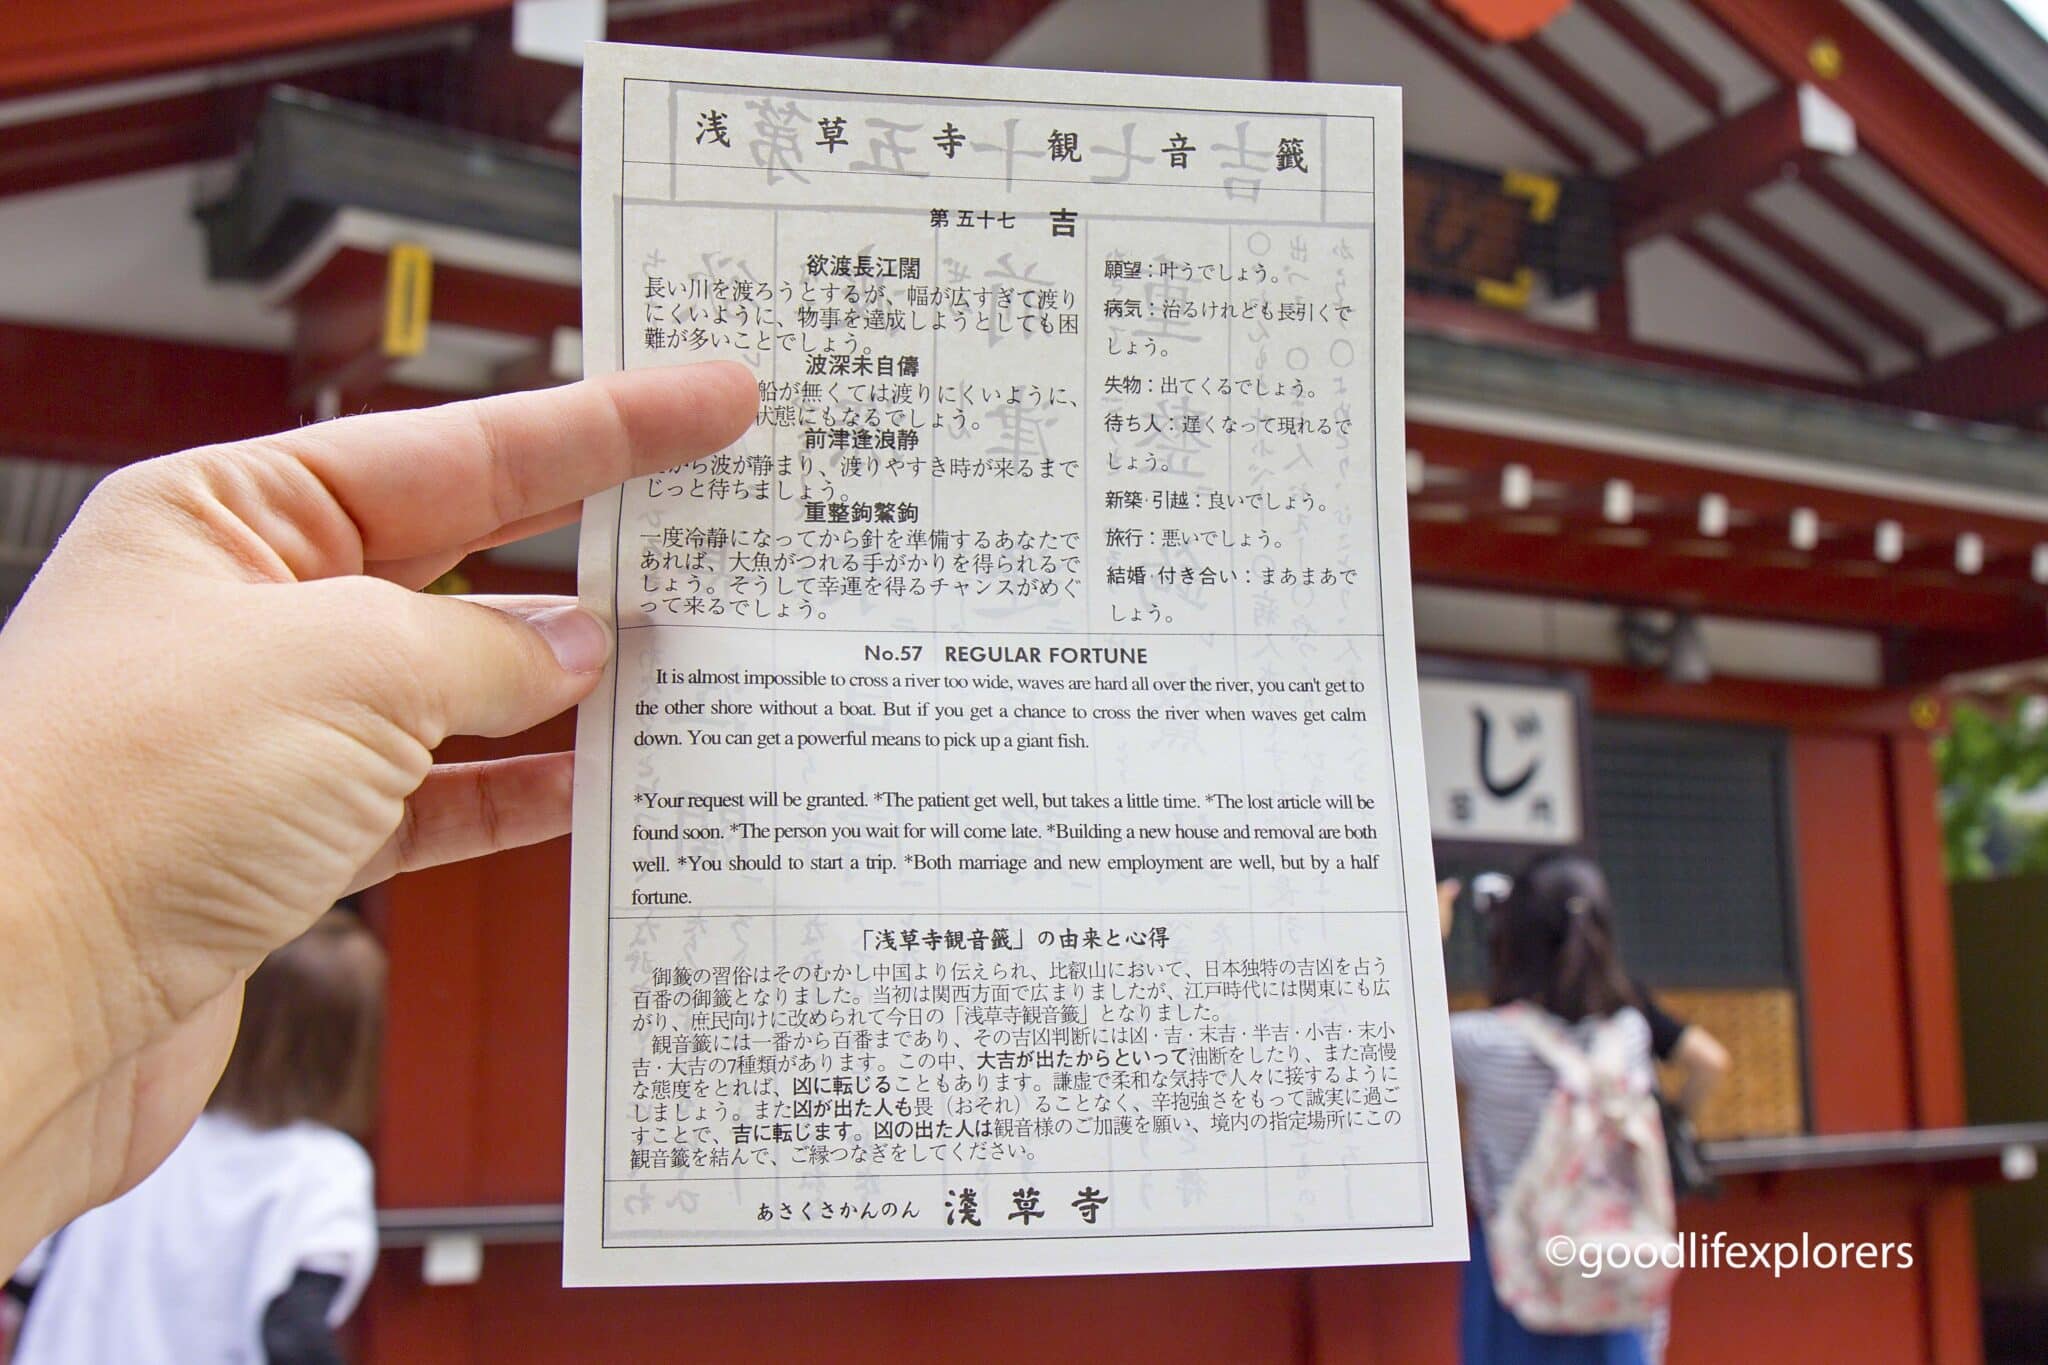 浅草寺観音籤
第五十七 吉
欲渡長江闊
長い川を渡ろうとするが、幅が広すぎて渡り
にくいように、物事を達成しようとしても困
難が多いことでしょう。
波深未自儔
船が無くては渡りにくいように、
状態にもなるでしょう。
前津逢浪静
から波が静まり、渡りやすき時が来るまで
じっと待ちましょう。
重整鉤鰲鉤
一度冷静になってから針を準備するあなたで
あれば、大魚がつれる手がかりを得られるで
しょう。そうして幸運を得るチャンスがめぐ
って来るでしょう。
願望：叶うでしょう。
病気：治るけれども長引くで
しょう。
失物：出てくるでしょう。
待ち人：遅くなって現れるで
しょう。
新築·引越：良いでしょう。
旅行：悪いでしょう。
結婚·付き合い：まあまあで
しょう。
No.57 REGULAR FORTUNE
It is almost impossible to cross a river too wide, waves are hard all over the river, you can't get to
the other shore without a boat. But if you get a chance to cross the river when waves get calm
down. You can get a powerful means to pick up a giant fish.
*Your request will be granted. *The patient get well, but takes a little time. *The lost article will be
found soon. *The person you wait for will come late. *Building a new house and removal are both
well. *You should to start a trip. *Both marriage and new employment are well, but by a half
fortune.
「浅草寺観音籤」の由来と心得
御籤の習俗はそのむかし中国より伝えられ、比叡山において、日本独特の吉凶を占う
百番の御籤となりました。当初は関西方面で広まりましたが、江戸時代には関東にも広
がり、庶民向けに改められて今日の「浅草寺観音籤」となりました。
観音籤には一番から百番まであり、その吉凶判断には凶·吉·末吉·半吉·小吉·末小
吉·大吉の7種類があります。この中、大吉が出たからといって油断をしたり、また高慢
な態度をとれば、凶に転じることもあります。謙虚で柔和な気持で人々に接するように
しましょう。また凶が出た人も畏（おそれ）ることなく、辛抱強さをもって誠実に過ご
すことで、吉に転じます。凶の出た人は観音様のご加護を願い、境内の指定場所にこの
観音籤を結んで、ご縁つなぎをしてください。
あさくさかんのん 淺草寺
じ
©goodlifexplorers